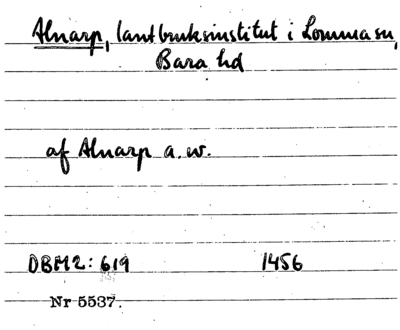 Alnarp, lantbruksinstitut i Lomma sn,
Bara hd
af Alnarp a. w.
DBM2: 619 1456
Nr 5537.